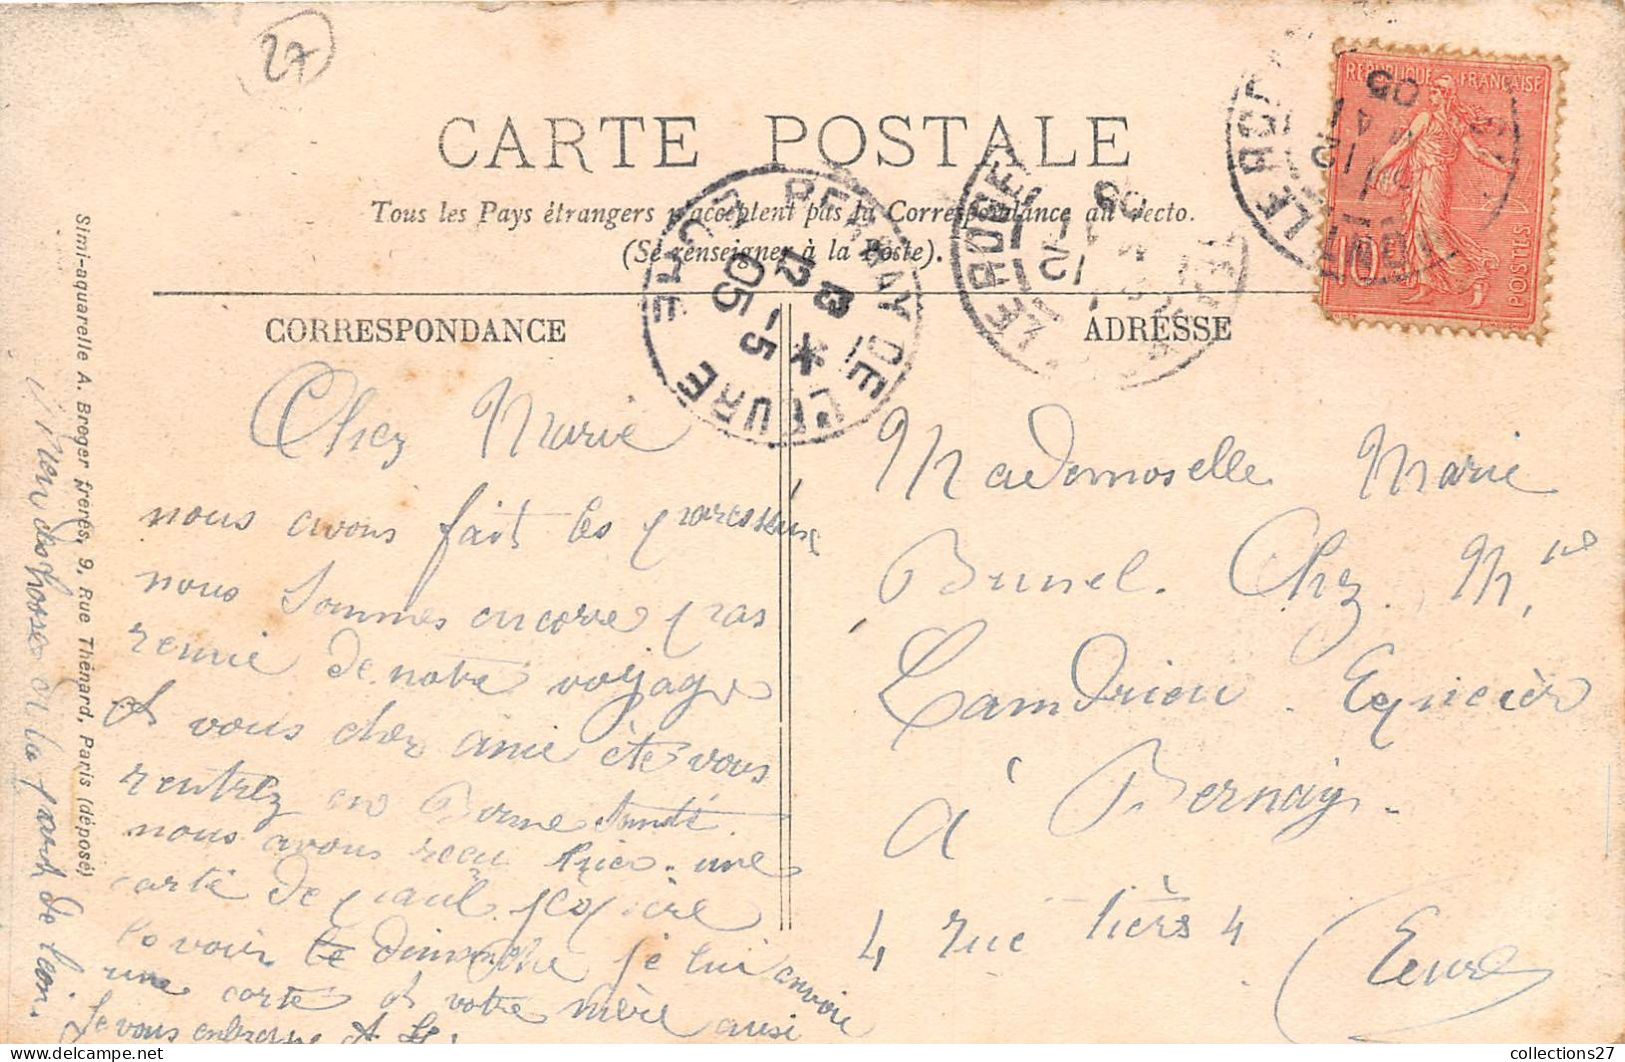 27
CARTE POSTALE
Tous les Pays étrangers n'acceptent pas la Correspondance au recto.
(Se renseigner à la Poste).
CORRESPONDANCE
ADRESSE
REPUBLIQUE FRANÇAISE
10
POSTES
PERRAY DE L'EURE
12 * 5-1 05
LE ROUGE
05
LE ROGE
12 1 05
Chez Marie
nous avons fait les paresseuse
nous sommes encorre pas
remie de notre voyage
et vous cher amie ête vous
rentrez en Bonne Santé.
nous avons reçu hier une
carte de paul
le voir le dimanche je lui envoie
une carte et votre mère ausi
Je vous enbrasse A. L.
Rien des chose de la part de Léon.
Mademoiselle Marie
Brunel. Chez. Mr
Landrieu. Epicièr
à Bernay.
4 rue tiers 4
Eure
Simi-aquarelle A. Breger frères, 9, Rue Thénard, Paris (déposé)
collections27